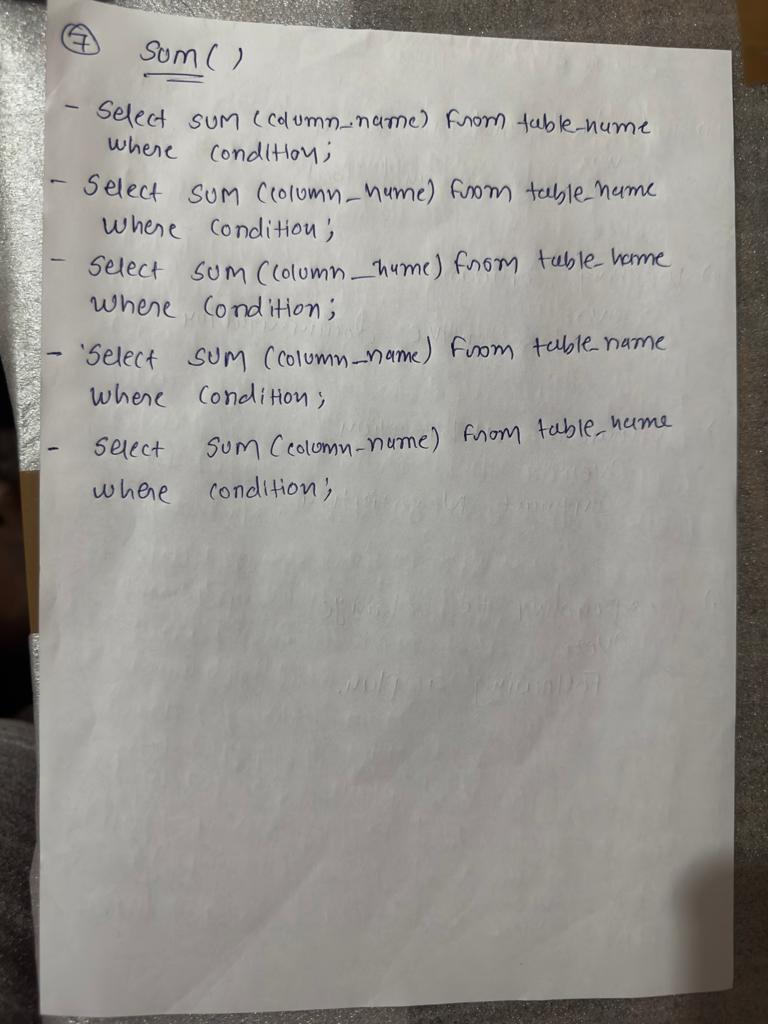 ⑦ SUM()
- Select SUM (column_name) from table_name
where condition;
- Select SUM (column_name) from table_name
where condition;
- Select SUM (column_name) from table_name
where condition;
- Select SUM (column_name) from table_name
where condition;
- Select SUM (column_name) from table_name
where condition;